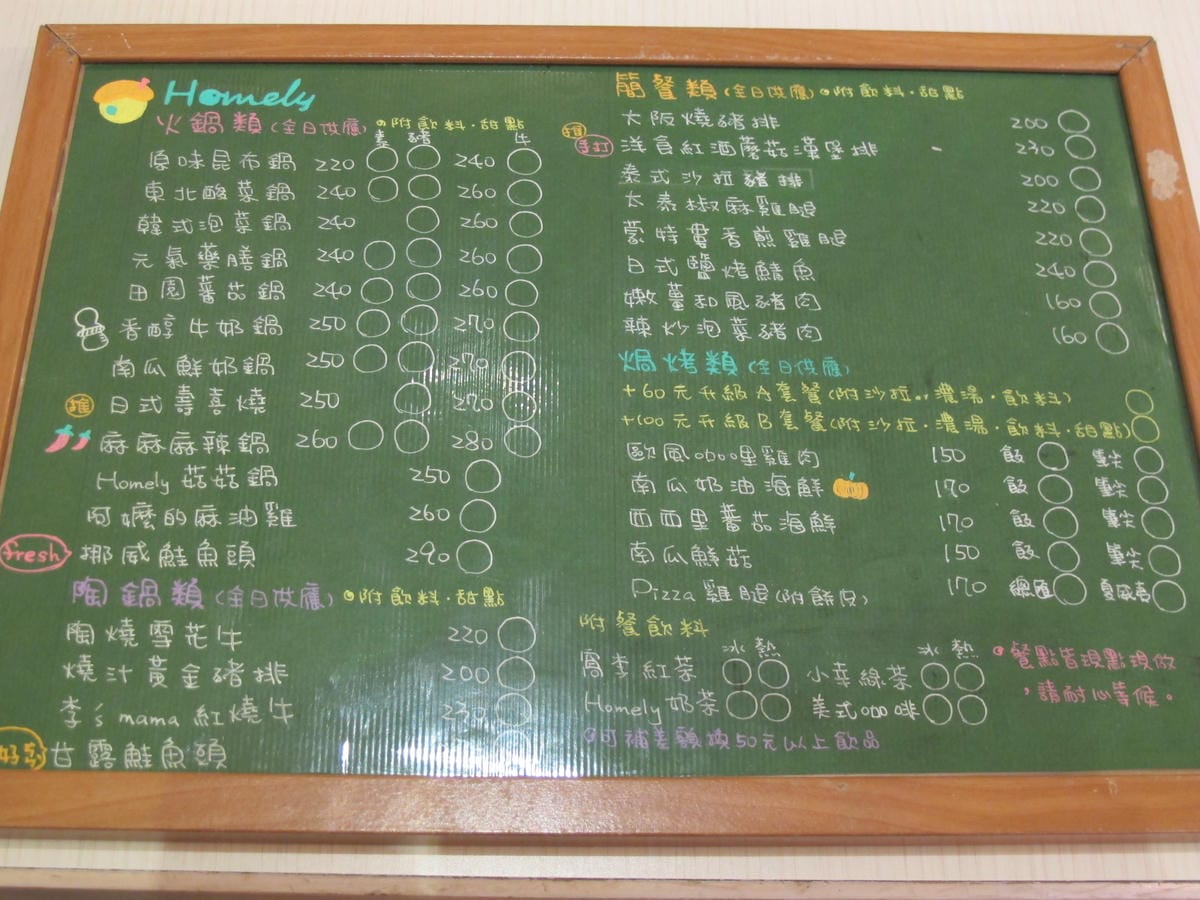 Homely
火鍋類(全日供應) 附飲料.甜點
素 豬 牛
原味昆布鍋 220 240
東北酸菜鍋 240 260
韓式泡菜鍋 240 260
元氣藥膳鍋 240 260
田園蕃茄鍋 240 260
香醇牛奶鍋 250 270
南瓜鮮奶鍋 250 270
推 日式壽喜燒 250 270
麻麻麻辣鍋 260 280
Homely 菇菇鍋 250
阿嬤的麻油雞 260
fresh 挪威鮭魚頭 290
陶鍋類(全日供應) 附飲料.甜點
陶燒雪花牛 220
燒汁黃金豬排 200
李's mama 紅燒牛 230
甘露鮭魚頭
簡餐類(全日供應) 附飲料.甜點
大阪燒豬排 200
推 手打 洋食紅酒蘑菇漢堡排 230
泰式沙拉豬排 200
太泰椒麻雞腿 220
蒙特婁香煎雞腿 220
日式鹽烤鯖魚 240
嫩薑和風豬肉 160
辣炒泡菜豬肉 160
焗烤類(全日供應)
+60元升級A套餐(附沙拉.濃湯.飲料)
+100元升級B套餐(附沙拉.濃湯.飲料.甜點)
歐風咖哩雞肉 150 飯 筆尖
南瓜奶油海鮮 170 飯 筆尖
西西里蕃茄海鮮 170 飯 筆尖
南瓜鮮菇 150 飯 筆尖
Pizza 雞腿(附餅皮) 170 總匯 夏威夷
附餐飲料
冰 熱 冰 熱
窩李紅茶 小葉綠茶
Homely 奶茶 美式咖啡
可補差額換50元以上飲品
餐點皆現點現做
，請耐心等候。